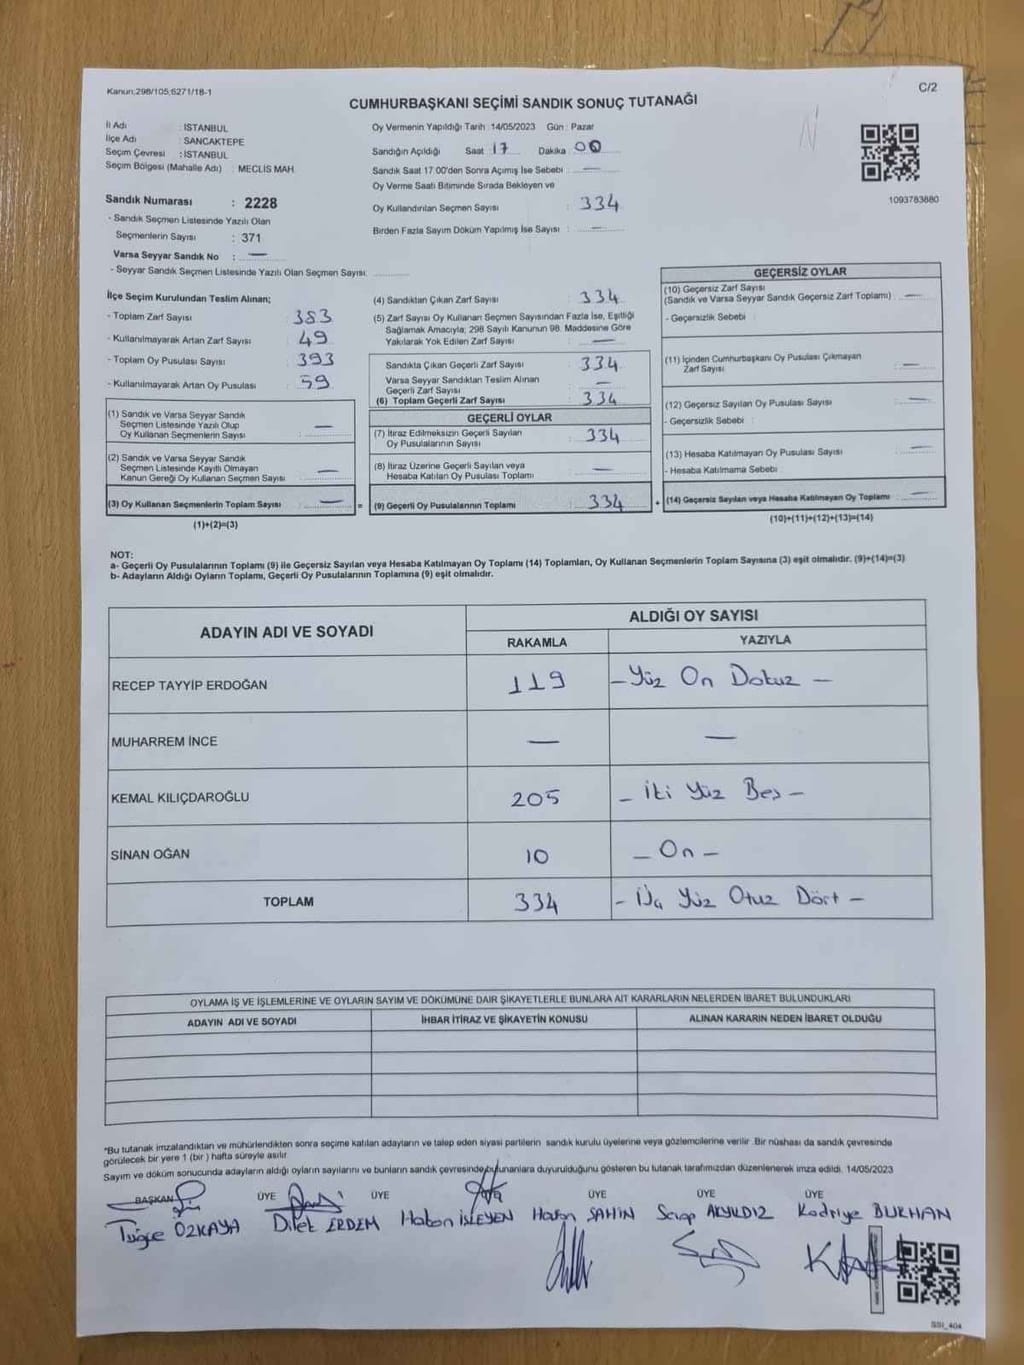 Kanun;298/105;6271/18-1
C/2
CUMHURBAŞKANI SEÇİMİ SANDIK SONUÇ TUTANAĞI
İl Adı : İSTANBUL
İlçe Adı : SANCAKTEPE
Seçim Çevresi : İSTANBUL
Seçim Bölgesi (Mahalle Adı) : MECLİS MAH.
Sandık Numarası : 2228
- Sandık Seçmen Listesinde Yazılı Olan
Seçmenlerin Sayısı : 371
Varsa Seyyar Sandık No : —
- Seyyar Sandık Seçmen Listesinde Yazılı Olan Seçmen Sayısı:
Oy Vermenin Yapıldığı Tarih : 14/05/2023 Gün : Pazar
Sandığın Açıldığı Saat 17 Dakika 00
Sandık Saat 17.00'den Sonra Açılmış İse Sebebi : —
Oy Verme Saati Bitiminde Sırada Bekleyen ve
Oy Kullandırılan Seçmen Sayısı : 334
Birden Fazla Sayım Döküm Yapılmış İse Sayısı : —
1093783880
İlçe Seçim Kurulundan Teslim Alınan;
- Toplam Zarf Sayısı : 383
- Kullanılmayarak Artan Zarf Sayısı : 49
- Toplam Oy Pusulası Sayısı : 393
- Kullanılmayarak Artan Oy Pusulası : 59
(1) Sandık ve Varsa Seyyar Sandık
Seçmen Listesinde Yazılı Olup
Oy Kullanan Seçmenlerin Sayısı : —
(2) Sandık ve Varsa Seyyar Sandık
Seçmen Listesinde Kayıtlı Olmayan
Kanun Gereği Oy Kullanan Seçmen Sayısı : —
(3) Oy Kullanan Seçmenlerin Toplam Sayısı : — =
(1)+(2)=(3)
(4) Sandıktan Çıkan Zarf Sayısı : 334
(5) Zarf Sayısı Oy Kullanan Seçmen Sayısından Fazla İse, Eşitliği
Sağlamak Amacıyla; 298 Sayılı Kanunun 98. Maddesine Göre
Yakılarak Yok Edilen Zarf Sayısı : —
Sandıkta Çıkan Geçerli Zarf Sayısı : 334
Varsa Seyyar Sandıktan Teslim Alınan
Geçerli Zarf Sayısı : —
(6) Toplam Geçerli Zarf Sayısı : 334
GEÇERLİ OYLAR
(7) İtiraz Edilmeksizin Geçerli Sayılan
Oy Pusulalarının Sayısı : 334
(8) İtiraz Üzerine Geçerli Sayılan veya
Hesaba Katılan Oy Pusulası Toplamı : —
(9) Geçerli Oy Pusulalarının Toplamı : 334 +
GEÇERSİZ OYLAR
(10) Geçersiz Zarf Sayısı
(Sandık ve Varsa Seyyar Sandık Geçersiz Zarf Toplamı) : —
- Geçersizlik Sebebi :
(11) İçinden Cumhurbaşkanı Oy Pusulası Çıkmayan
Zarf Sayısı : —
(12) Geçersiz Sayılan Oy Pusulası Sayısı : —
- Geçersizlik Sebebi :
(13) Hesaba Katılmayan Oy Pusulası Sayısı : —
- Hesaba Katılmama Sebebi :
(14) Geçersiz Sayılan veya Hesaba Katılmayan Oy Toplamı : —
(10)+(11)+(12)+(13)=(14)
NOT:
a- Geçerli Oy Pusulalarının Toplamı (9) ile Geçersiz Sayılan veya Hesaba Katılmayan Oy Toplamı (14) Toplamları, Oy Kullanan Seçmenlerin Toplam Sayısına (3) eşit olmalıdır. (9)+(14)=(3)
b- Adayların Aldığı Oyların Toplamı, Geçerli Oy Pusulalarının Toplamına (9) eşit olmalıdır.
ADAYIN ADI VE SOYADI
ALDIĞI OY SAYISI
RAKAMLA YAZIYLA
RECEP TAYYİP ERDOĞAN 119 - Yüz On Dokuz -
MUHARREM İNCE — —
KEMAL KILIÇDAROĞLU 205 - İki Yüz Beş -
SİNAN OĞAN 10 - On -
TOPLAM 334 - Üç Yüz Otuz Dört -
OYLAMA İŞ VE İŞLEMLERİNE VE OYLARIN SAYIM VE DÖKÜMÜNE DAİR ŞİKAYETLERLE BUNLARA AİT KARARLARIN NELERDEN İBARET BULUNDUKLARI
ADAYIN ADI VE SOYADI İHBAR İTİRAZ VE ŞİKAYETİN KONUSU ALINAN KARARIN NEDEN İBARET OLDUĞU
*Bu tutanak imzalandıktan ve mühürlendikten sonra seçime katılan adayların ve talep eden siyasi partilerin sandık kurulu üyelerine veya gözlemcilerine verilir. Bir nüshası da sandık çevresinde
görülecek bir yere 1 (bir) hafta süreyle asılır.
Sayım ve döküm sonucunda adayların aldığı oyların sayılarını ve bunların sandık çevresinde bulunanlara duyurulduğunu gösteren bu tutanak tarafımızdan düzenlenerek imza edildi. 14/05/2023
BAŞKAN ÜYE ÜYE ÜYE ÜYE ÜYE
Tuğçe ÖZKAYA Dilek ERDEM Hakan İŞLEYEN Hasan ŞAHİN Serap AKYILDIZ Kadriye BURHAN
SSI_404